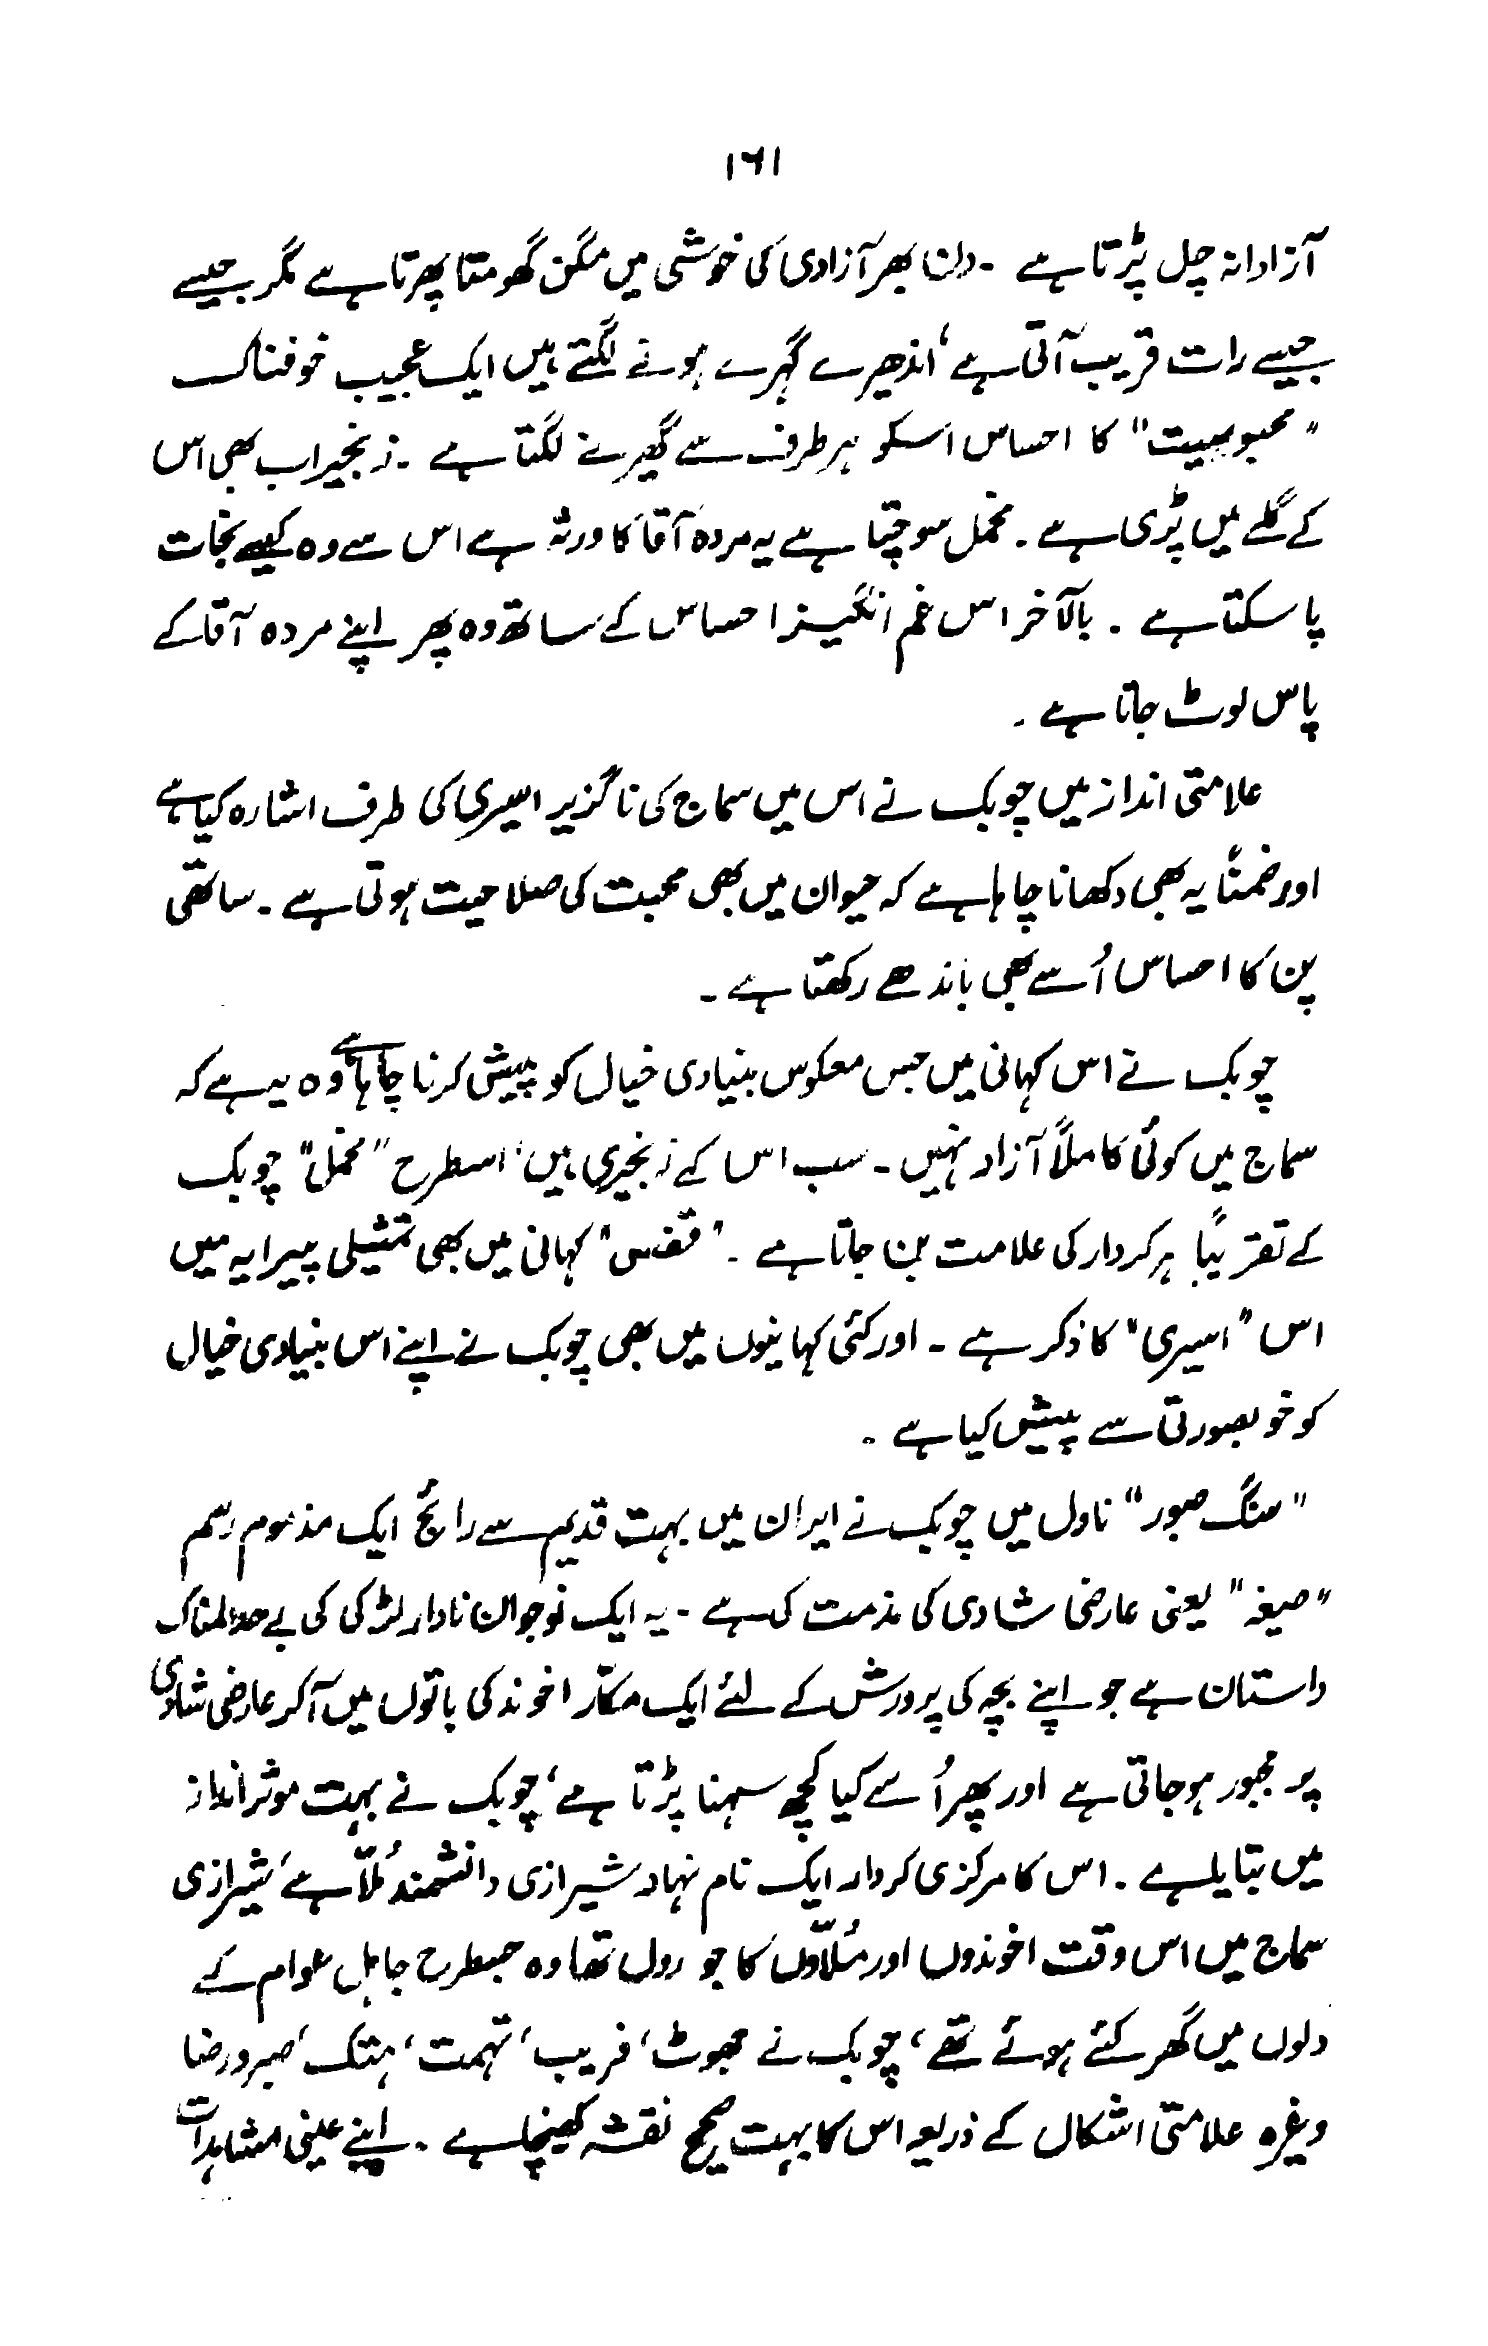 ۱۶۱
آزادانہ چل پڑتا ہے ۔ دن بھر آزادی کی خوشی میں مگن گھومتا پھرتا ہے مگر جیسے
جیسے رات قریب آتی ہے، اندھیرے گہرے ہونے لگتے ہیں ایک عجیب خوفناک
"محبوسیت" کا احساس اسکو ہر طرف سے گھیرنے لگتا ہے ۔ زنجیر اب بھی اس
کے گلے میں پڑی ہے ۔ مخمل سوچتا ہے یہ مردہ آقا کا ورثہ ہے اس سے وہ کیسے نجات
پا سکتا ہے ۔ بالآخر اس غم انگیز احساس کے ساتھ وہ پھر اپنے مردہ آقا کے
پاس لوٹ جاتا ہے ۔
علامتی انداز میں چوبک نے اس میں سماج کی ناگزیر اسیری کی طرف اشارہ کیا ہے
اور ضمناً یہ بھی دکھانا چاہا ہے کہ حیوان میں بھی محبت کی صلاحیت ہوتی ہے ۔ ساتھی
پن کا احساس اُسے بھی باندھے رکھتا ہے ۔
چوبک نے اس کہانی میں جس معکوس بنیادی خیال کو پیش کرنا چاہا ہے وہ یہ ہے کہ
سماج میں کوئی کاملاً آزاد نہیں ۔ سب اس کے زنجیری ہیں، اسطرح "مخمل" چوبک
کے تقریباً ہر کردار کی علامت بن جاتا ہے ۔ "قفس" کہانی میں بھی تمثیلی پیرایہ میں
اس "اسیری" کا ذکر ہے ۔ اور کئی کہانیوں میں بھی چوبک نے اپنے اس بنیادی خیال
کو خوبصورتی سے پیش کیا ہے ۔
"سنگ صبور" ناول میں چوبک نے ایران میں بہت قدیم سے رائج ایک مذموم رسم
"صیغہ" یعنی عارضی شادی کی مذمت کی ہے ۔ یہ ایک نوجوان نادار لڑکی کی بے حد المناک
داستان ہے جو اپنے بچہ کی پرورش کے لئے ایک مکّار اخوند کی باتوں میں آکر عارضی شادی
پر مجبور ہوجاتی ہے اور پھر اُسے کیا کچھ سہنا پڑتا ہے، چوبک نے بہت موثر انداز
میں بتایا ہے ۔ اس کا مرکزی کردار ایک نام نہاد شیرازی دانشمند مُلّا ہے، شیرازی
سماج میں اس وقت اخوندوں اور مُلّاؤں کا جو رول تھا وہ جسطرح جاہل عوام کے
دلوں میں گھر کئے ہوئے تھے، چوبک نے جھوٹ، فریب، تہمت، ہتک، صبر و رضا
وغیرہ علامتی اشکال کے ذریعہ اس کا بہت صحیح نقشہ کھینچا ہے ۔ اپنے عینی مشاہدات